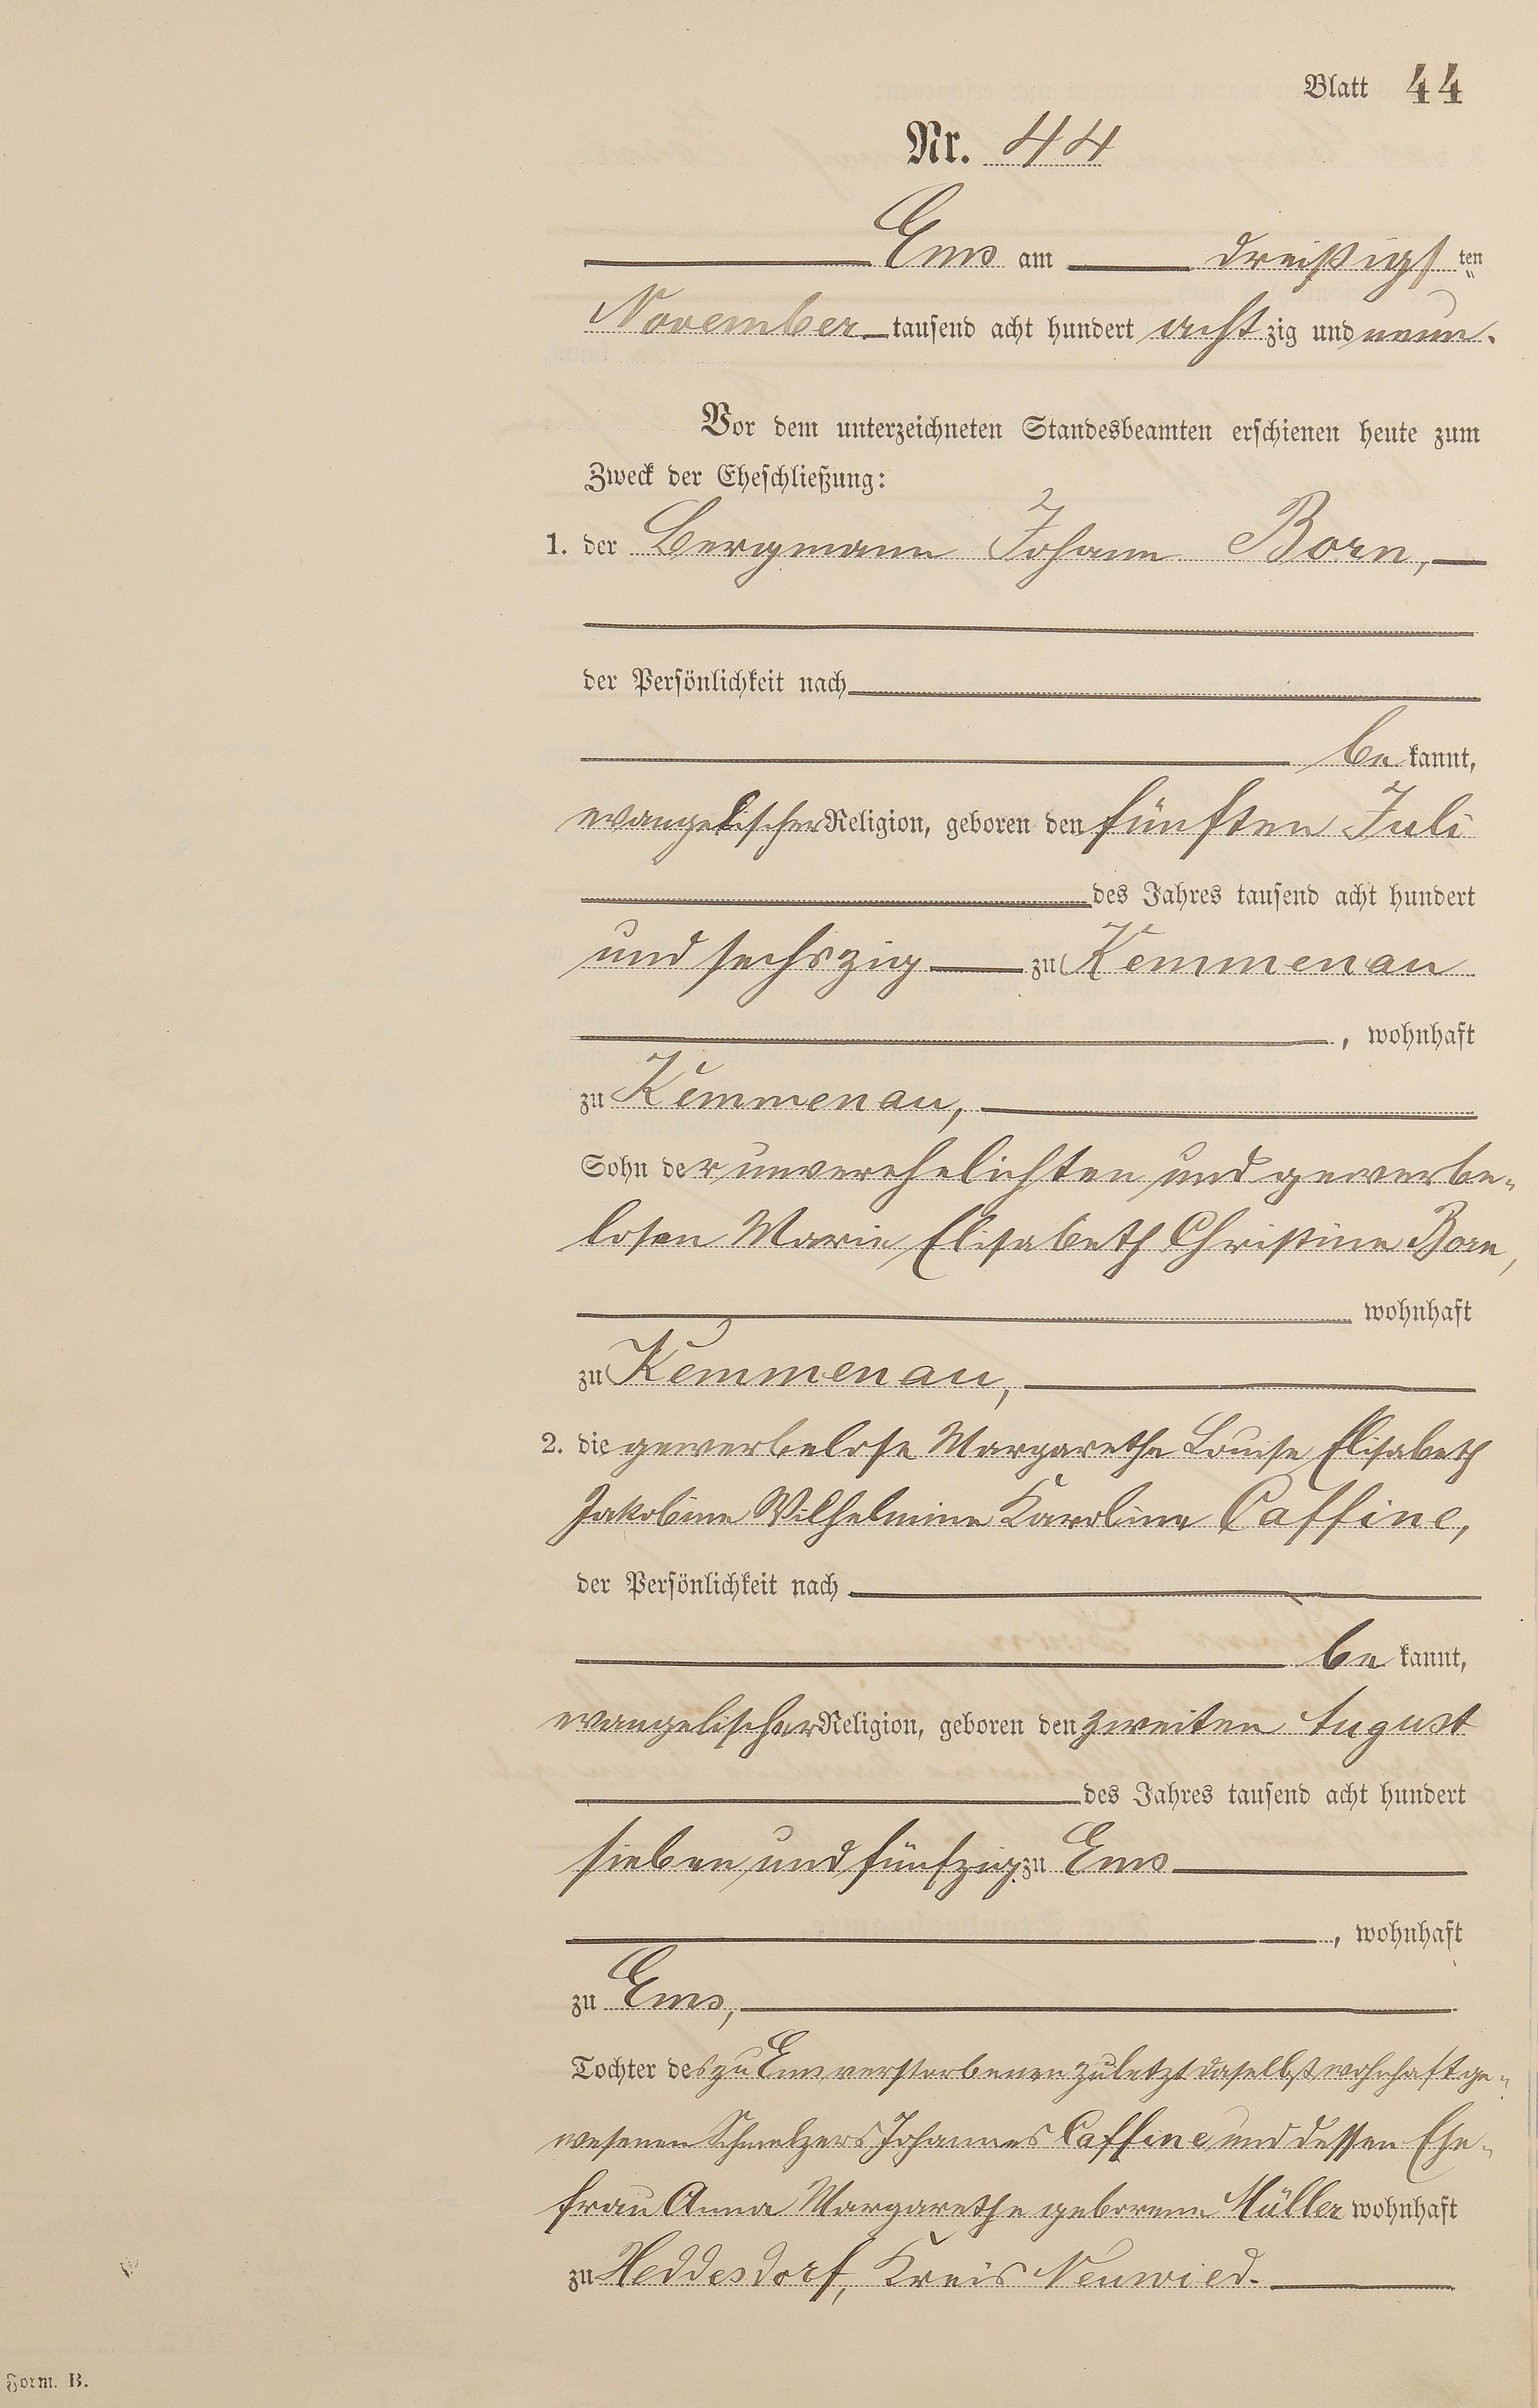 Blatt 44
Nr. 44
Ems am dreißigsten
November tausend acht hundert achtzig und neun.
Vor dem unterzeichneten Standesbeamten erschienen heute zum
Zweck der Eheschließung:
1. der Bergmann Johann Born,
der Persönlichkeit nach
be kannt,
evangelischer Religion, geboren den fünften Juli
des Jahres tausend acht hundert
und sechszig zu Kemmenau
, wohnhaft
zu Kemmenau,
Sohn der unverehelichten und gewerbe-
losen Marie Elisabeth Christine Born,
wohnhaft
zu Kemmenau,
2. die gewerbelose Margarethe Louise Elisabeth
Jakobine Wilhelmine Karoline Caffine,
der Persönlichkeit nach
be kannt,
evangelischer Religion, geboren den zweiten August
des Jahres tausend acht hundert
sieben und fünfzig zu Ems
, wohnhaft
zu Ems,
Tochter des zu Ems verstorbenen zuletzt daselbst wohnhaft ge-
wesenen Schmelzers Johannes Caffine und dessen Ehe-
frau Anna Margarethe geborene Müller wohnhaft
zu Heddesdorf, Kreis Neuwied.
Form. B.